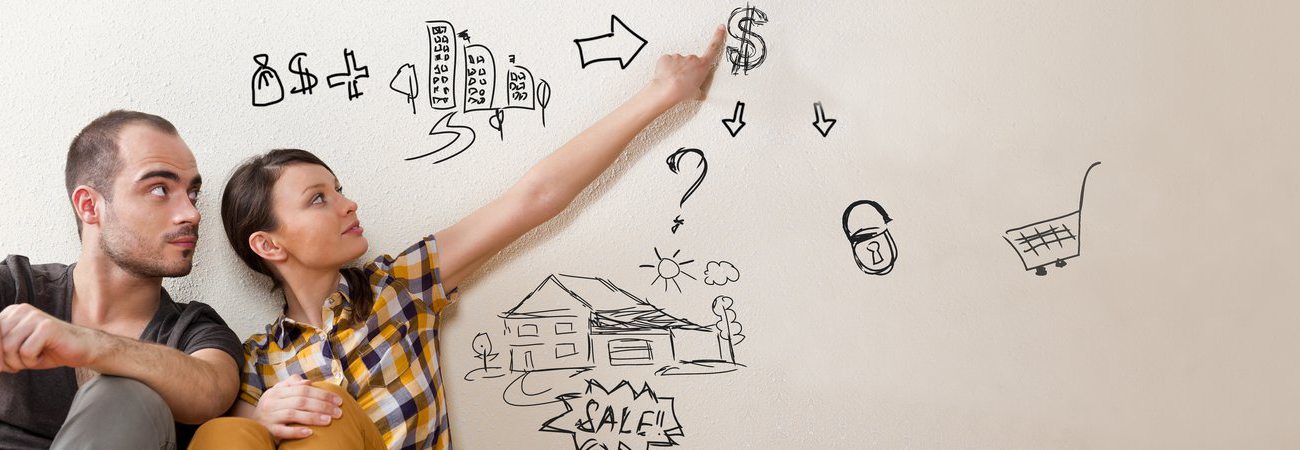 $ +
$
?
SALE!!